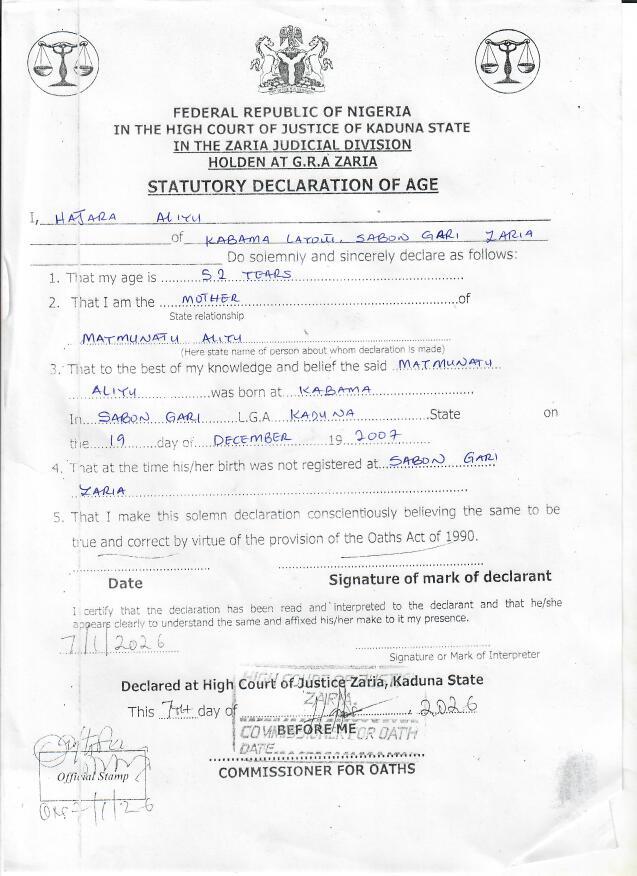 FEDERAL REPUBLIC OF NIGERIA
IN THE HIGH COURT OF JUSTICE OF KADUNA STATE
IN THE ZARIA JUDICIAL DIVISION
HOLDEN AT G.R.A ZARIA
STATUTORY DECLARATION OF AGE
I, HAJARA ALIYU
of KABAMA LAYOUT, SABON GARI ZARIA
Do solemnly and sincerely declare as follows:
1. That my age is 52 YEARS
2. That I am the MOTHER of
State relationship
MAIMUNATU ALIYU
(Here state name of person about whom declaration is made)
3. That to the best of my knowledge and belief the said MAIMUNATU
ALIYU was born at KABAMA
In SABON GARI L.G.A KADUNA State on
the 19 day of DECEMBER 19 2007
4. That at the time his/her birth was not registered at SABON GARI
ZARIA
5. That I make this solemn declaration conscientiously believing the same to be
true and correct by virtue of the provision of the Oaths Act of 1990.
Date Signature of mark of declarant
I certify that the declaration has been read and interpreted to the declarant and that he/she
appears clearly to understand the same and affixed his/her make to it my presence.
7/1/2026
Signature or Mark of Interpreter
Declared at High Court of Justice Zaria, Kaduna State
This 7th day of 2026
HIGH COURT OF JUSTICE
ZARIA
BEFORE ME
COMMISSIONER FOR OATH
DATE
COMMISSIONER FOR OATHS
Official Stamp
7/1/26